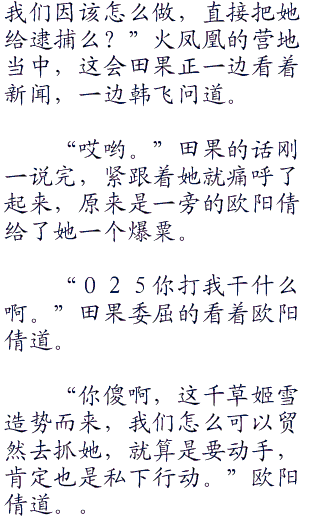 我们因该怎么做，直接把她
给逮捕么？”火凤凰的营地
当中，这会田果正一边看着
新闻，一边韩飞问道。
“哎哟。”田果的话刚
一说完，紧跟着她就痛呼了
起来，原来是一旁的欧阳倩
给了她一个爆粟。
“０２５你打我干什么
啊。”田果委屈的看着欧阳
倩道。
“你傻啊，这千草姬雪
造势而来，我们怎么可以贸
然去抓她，就算是要动手，
肯定也是私下行动。”欧阳
倩道。。